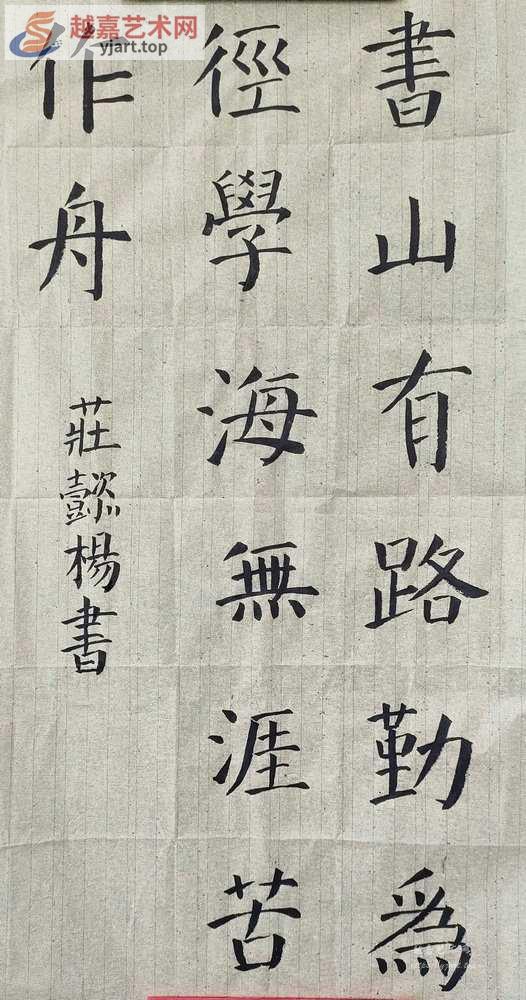 書山有路勤為
徑學海無涯苦
作舟
莊懿楊書
越嘉艺术网
yjart.top